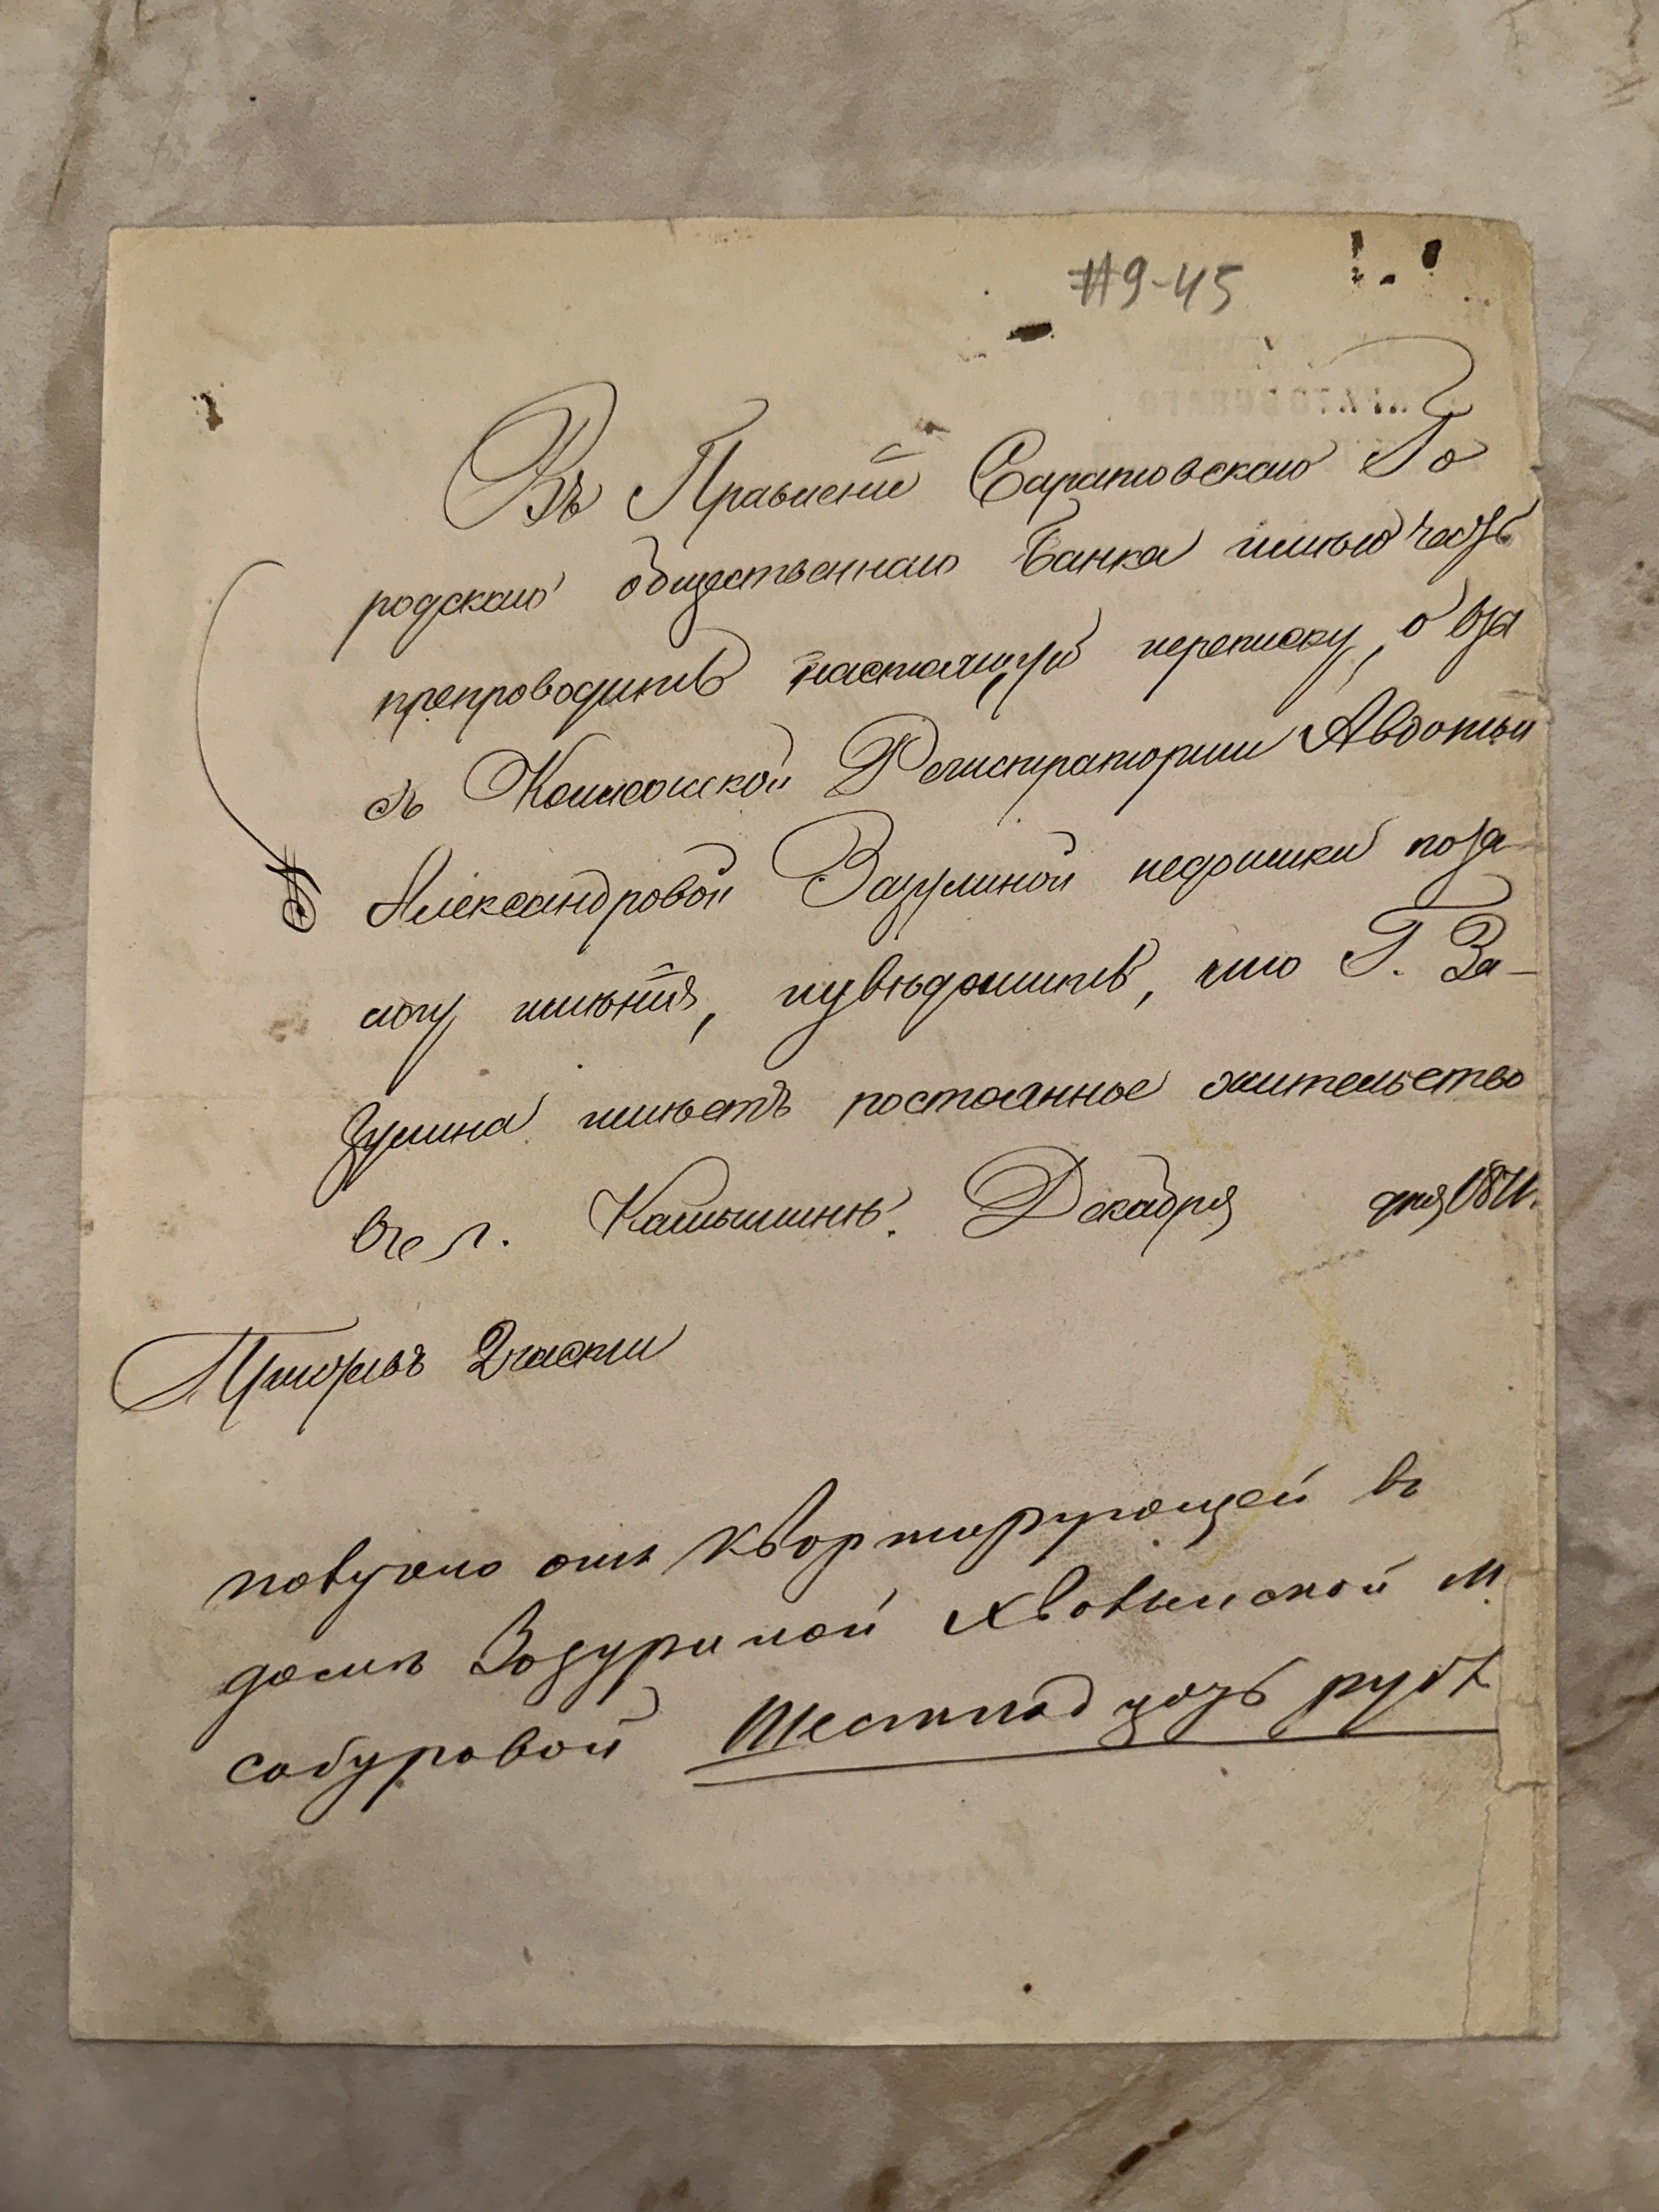 #9-45
Въ Правленіе Саратовскаго Го
родскаго общественнаго Банка имѣю честь
препроводить настоящую переписку, о взы
съ Коллежской Регистраторши Авдотьи
Александровой Зазулиной недоимки по за
логу имѣнія, и увѣдомить, что Г. За-
зулина имѣетъ постоянное жительство
въ г. Камышинѣ. Декабря дня 187
Приставъ 2 части
получено отъ квартирующей въ
доме Зазулиной Хвалынской М.
Сабуровой Шестнадцать руб